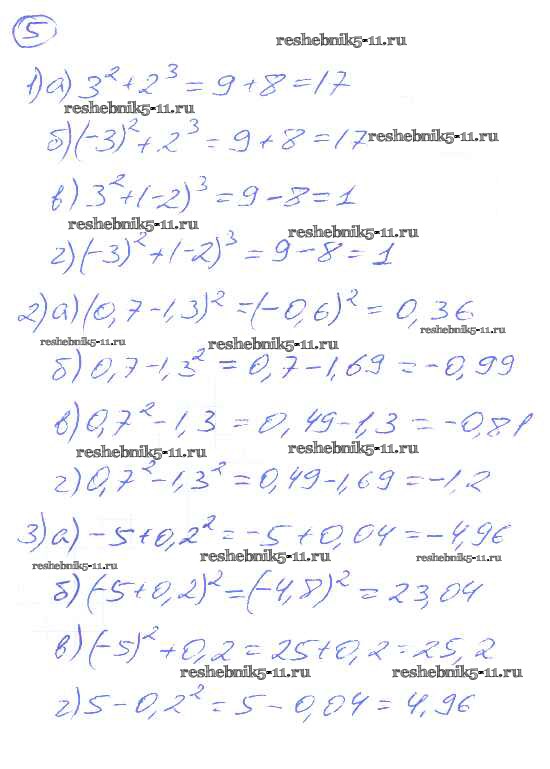 5
reshebnik5-11.ru
1) а) 3² + 2³ = 9 + 8 = 17
reshebnik5-11.ru
б) (-3)² + 2³ = 9 + 8 = 17 reshebnik5-11.ru
в) 3² + (-2)³ = 9 - 8 = 1
reshebnik5-11.ru reshebnik5-11.ru
г) (-3)² + (-2)³ = 9 - 8 = 1
2) а) (0,7 - 1,3)² = (-0,6)² = 0,36
reshebnik5-11.ru
reshebnik5-11.ru reshebnik5-11.ru
б) 0,7 - 1,3² = 0,7 - 1,69 = -0,99
в) 0,7² - 1,3 = 0,49 - 1,3 = -0,81
reshebnik5-11.ru reshebnik5-11.ru
г) 0,7² - 1,3² = 0,49 - 1,69 = -1,2
3) а) -5 + 0,2² = -5 + 0,04 = -4,96
reshebnik5-11.ru reshebnik5-11.ru reshebnik5-11.ru
б) (-5 + 0,2)² = (-4,8)² = 23,04
в) (-5)² + 0,2 = 25 + 0,2 = 25,2
reshebnik5-11.ru reshebnik5-11.ru
г) 5 - 0,2² = 5 - 0,04 = 4,96